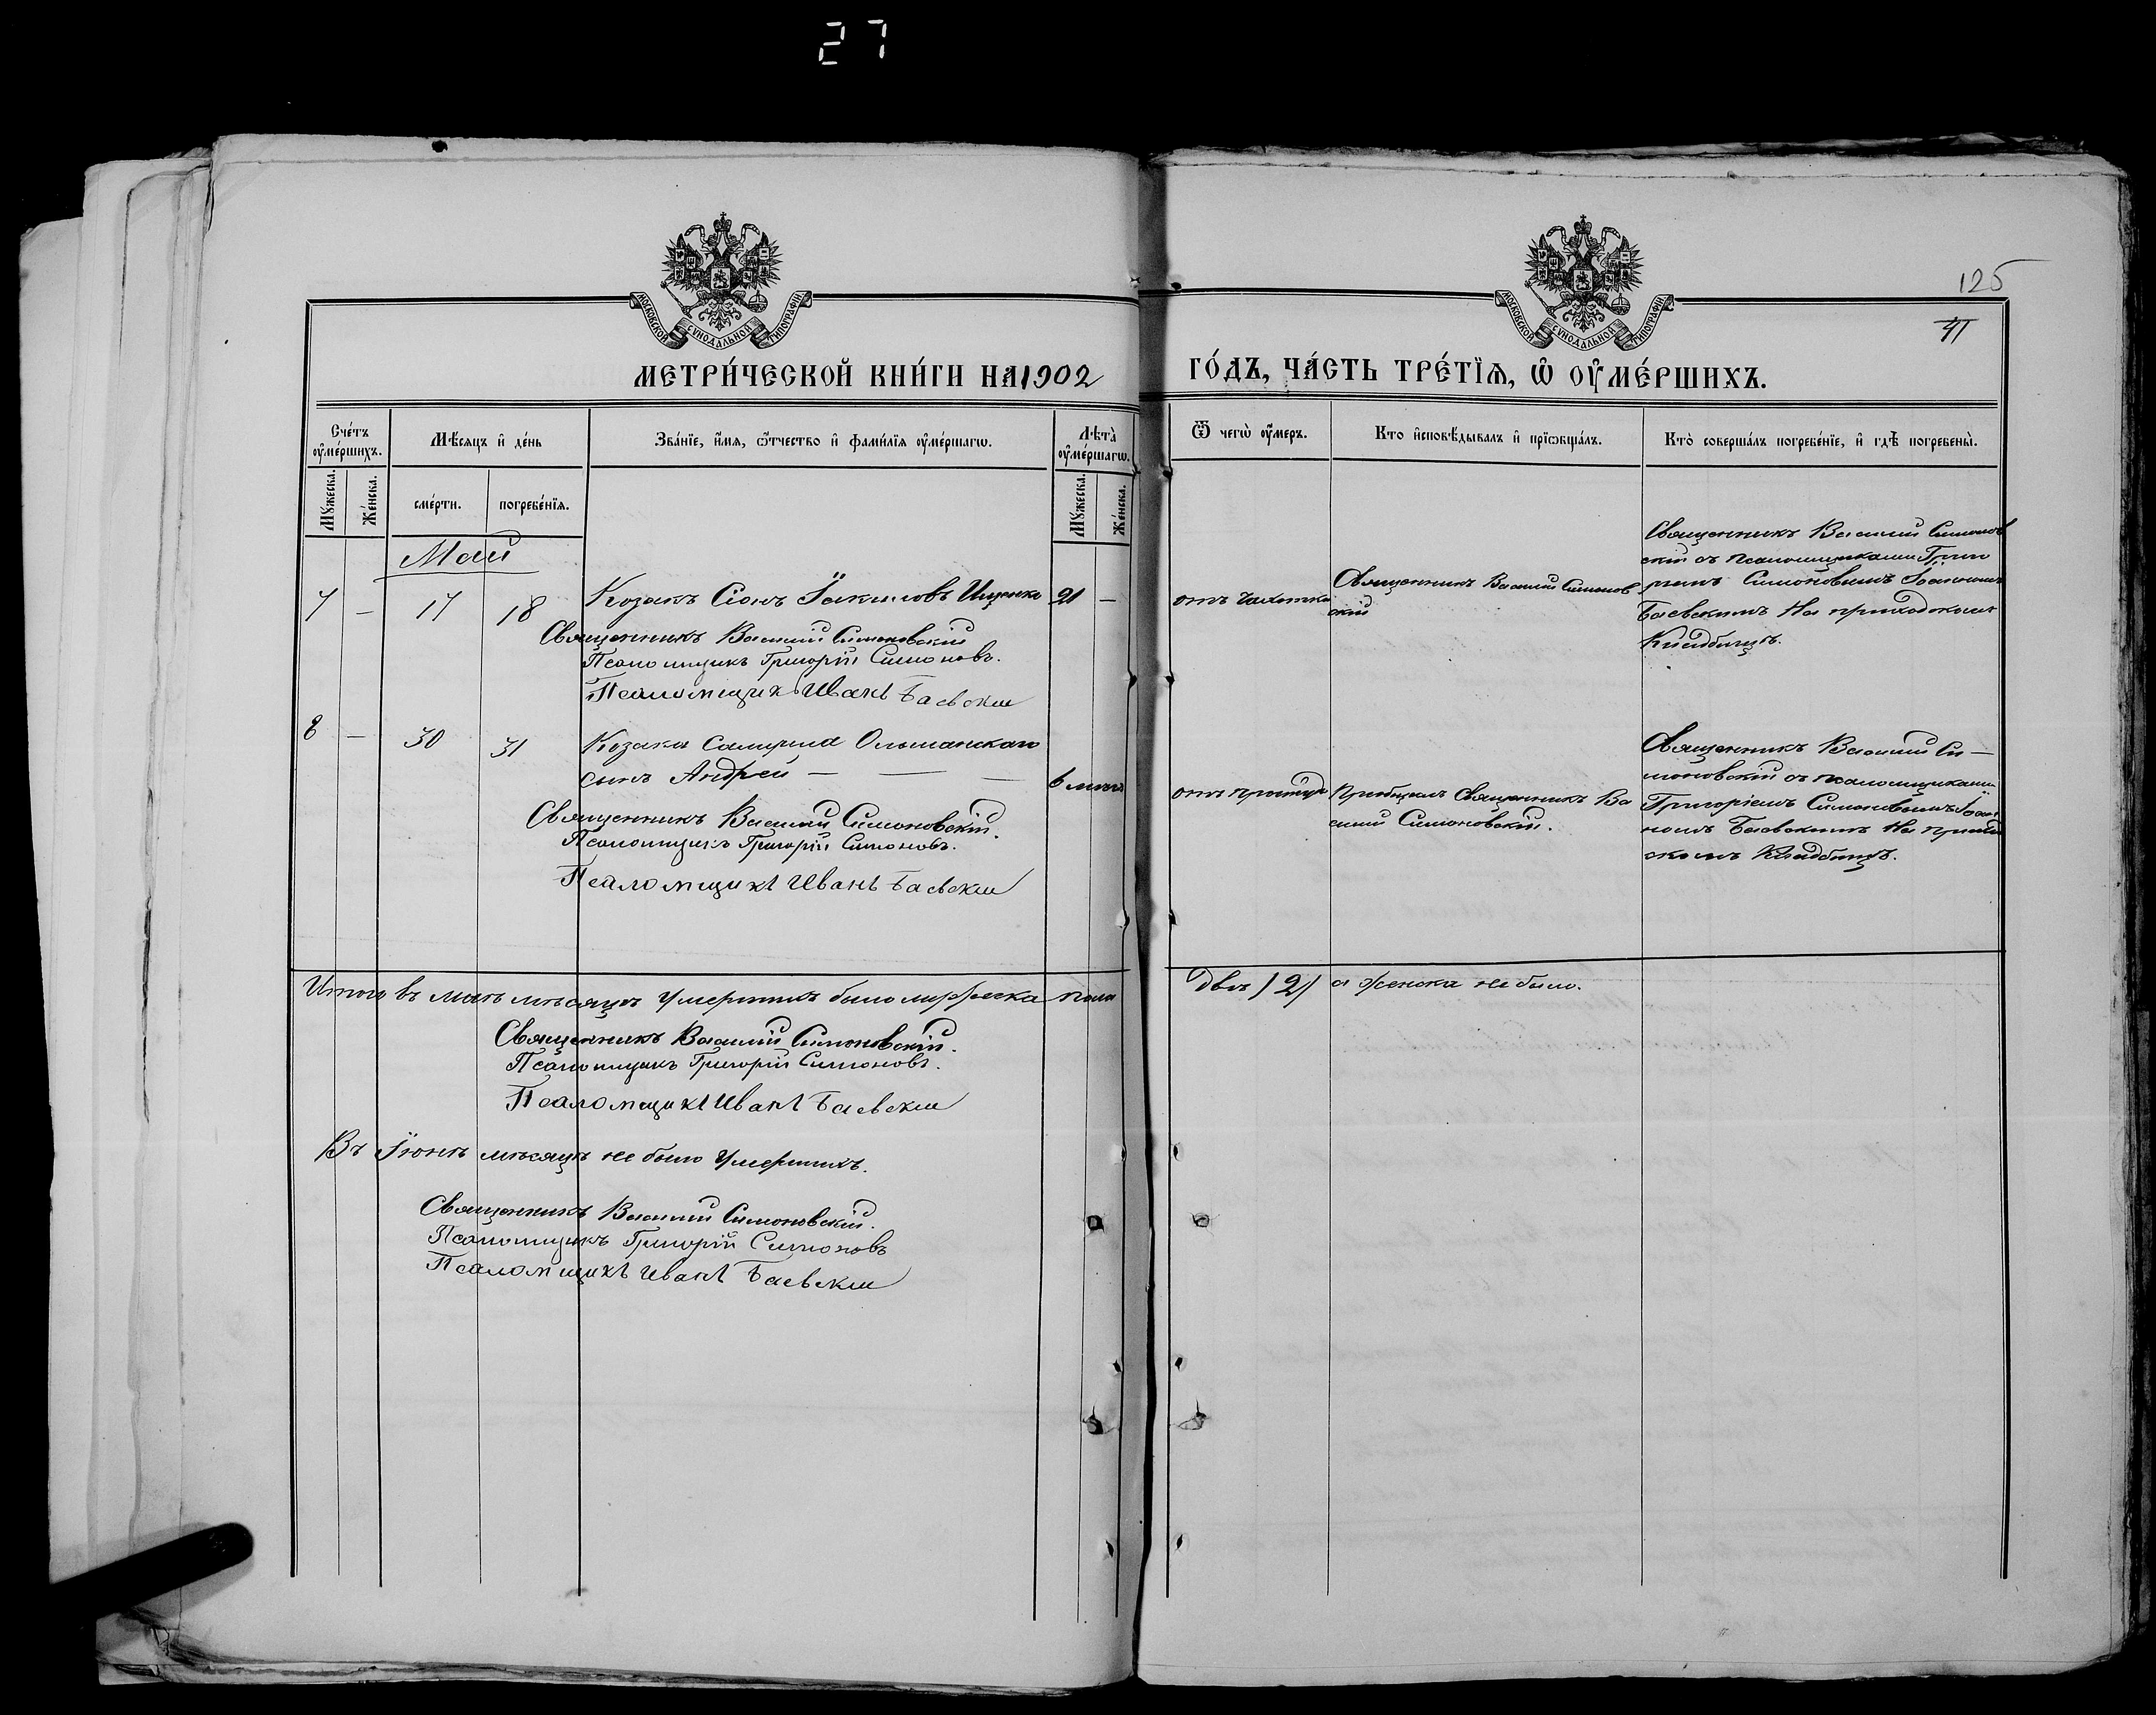 27
125
41
МОСКОВСКОЙ СѴНОДАЛЬНОЙ ТИПОГРАФІИ
МОСКОВСКОЙ СѴНОДАЛЬНОЙ ТИПОГРАФІИ
МЕТРИ́ЧЕСКОЙ КНИ́ГИ НА 1902 ГО́ДЪ, ЧА́СТЬ ТРЕ́ТЇѦ, Ѡ ОУМЕ́РШИХЪ.
Сче́тъ оуме́ршихъ.
Мѣ́сяцъ и де́нь
Зва́нїе, и́мя, ѻ́тчество и фами́лїя оуме́ршагѡ.
Лѣта̀ оуме́ршагѡ.
Ѿ чегѡ̀ оу́меръ.
Кто исповѣ́дывалъ и прїѡбща́лъ.
Кто̀ соверша́лъ погребе́нїе, и гдѣ̀ погребены̀.
Мꙋ́жеска.
Же́нска.
сме́рти.
погребе́нїя.
Мꙋ́жеска.
Же́нска.
Май
7 — 17 18 Козакъ Сіонъ Іакимовъ Ищенко 21 —
Священникъ Василій Симоновскій
Псаломщикъ Григорій Симоновъ.
Псаломщикъ Иванъ Баевскій
отъ чахотки
Священникъ Василій Симонов
скій
Священникъ Василій Симонов
скій съ псаломщиками Григо
ріемъ Симоновымъ Іоанномъ
Баевскимъ На приходскомъ
Кладбищѣ.
8 — 30 31 Козака Ольшанскаго
сынъ Андрей — — — 6 мѣс
Священникъ Василій Симоновскій.
Псаломщикъ Григорій Симоновъ.
Псаломщикъ Иванъ Баевскій
отъ простуды
Пріобщалъ Священникъ Ва
силий Симоновскій.
Священникъ Василій Си—
моновскій съ псаломщиками
Григоріемъ Симоновымъ Іоан
номъ Баевскимъ На приход
скомъ Кладбищѣ.
Итого въ маѣ мѣсяцѣ умершихъ было мужеска пола два /2/ а женска не было.
Священникъ Василій Симоновскій.
Псаломщикъ Григорій Симоновъ.
Псаломщикъ Иванъ Баевскій
Въ Іюнѣ мѣсяцѣ не было умершихъ.
Священникъ Василій Симоновскій.
Псаломщикъ Григорій Симоновъ
Псаломщикъ Иванъ Баевскій